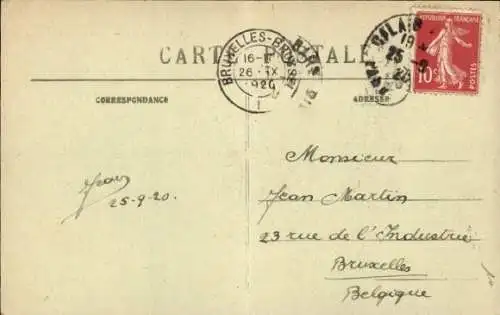 CARTE POSTALE
RÉPUBLIQUE FRANÇAISE
10c
POSTES
BRUXELLES-BRUSSEL
16-
26 IX
1920
1
PARIS
19
25
-9
20
CORRESPONDANCE
ADRESSE
Jean
25-9-20.
Monsieur
Jean Martin
23 rue de l'Industrie
Bruxelles
Belgique